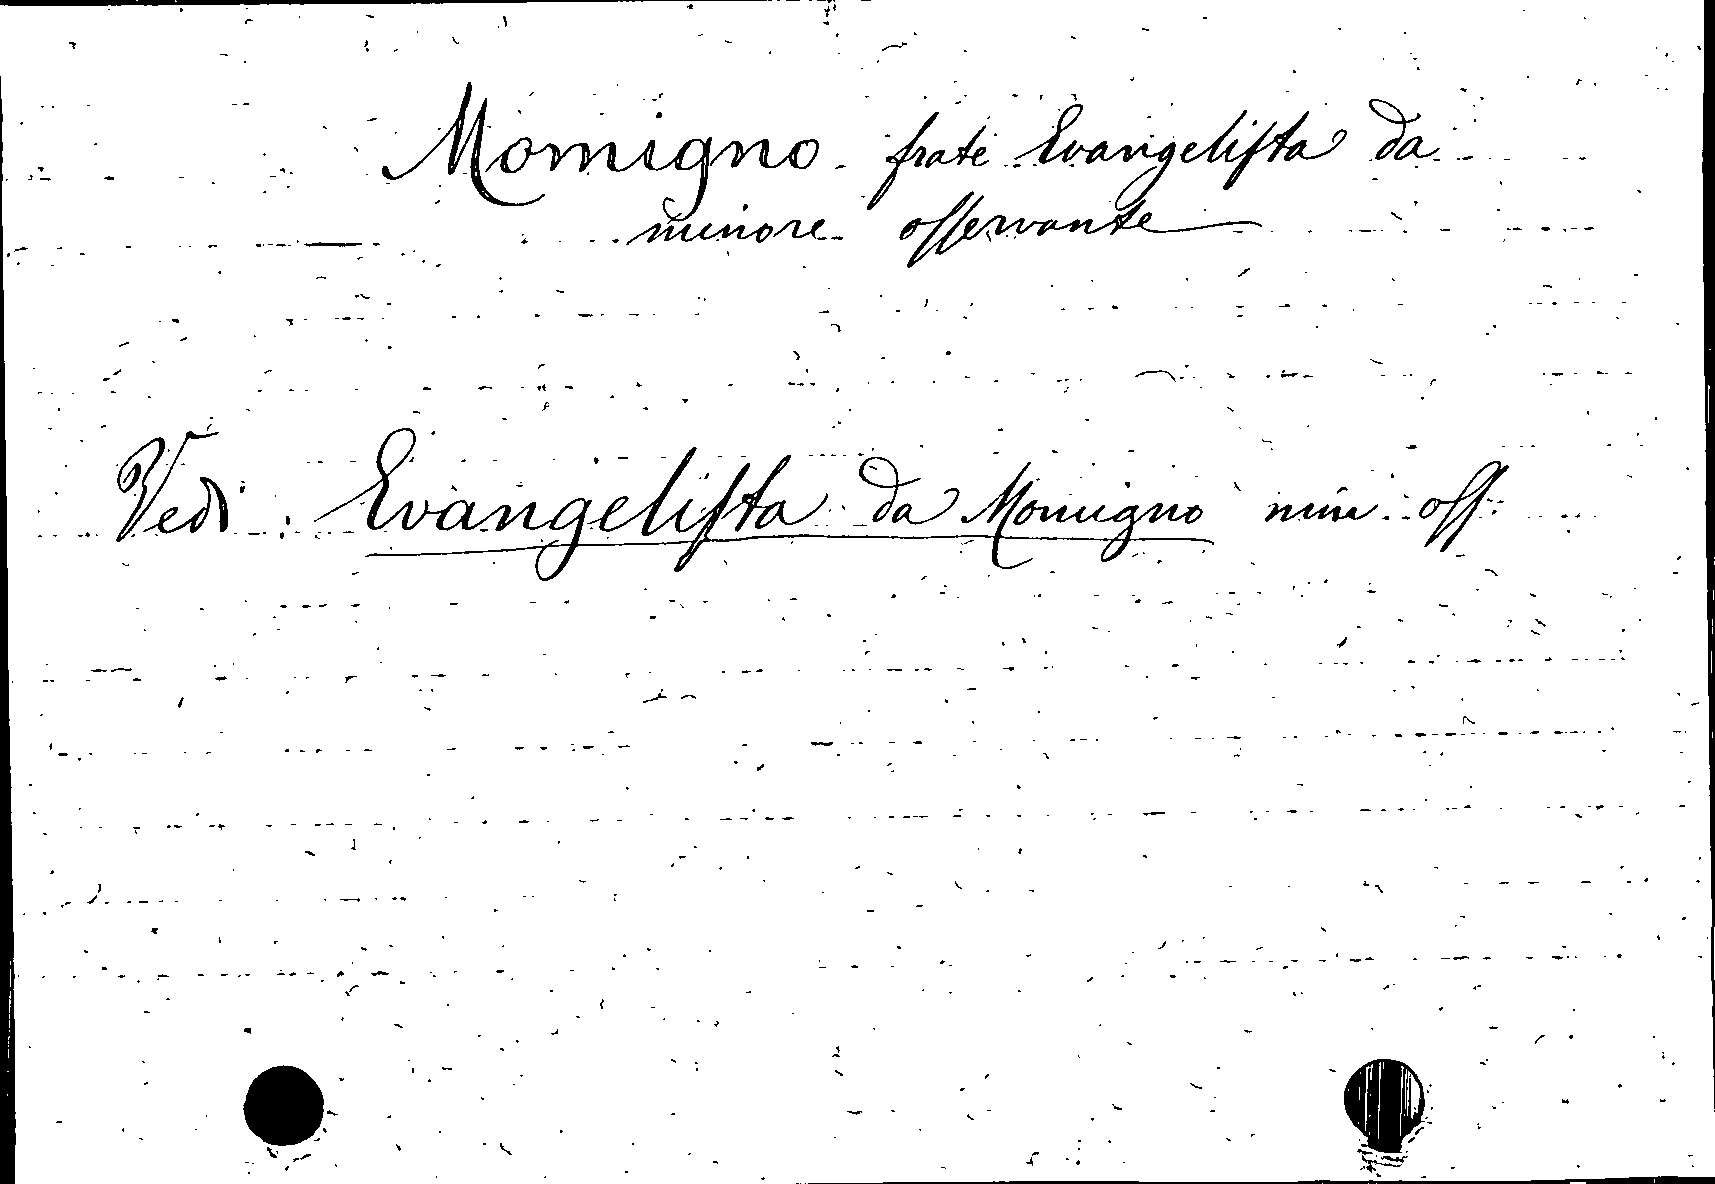 Momigno frate Evangelista da
minore osservante
Vedi Evangelista da Momigno min. oss.